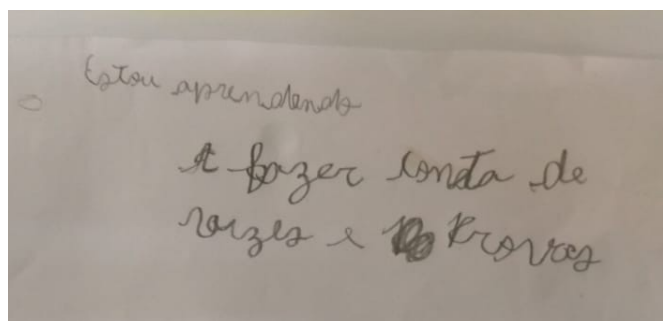 Estou aprendendo
A fazer conta de
vezes e Provas